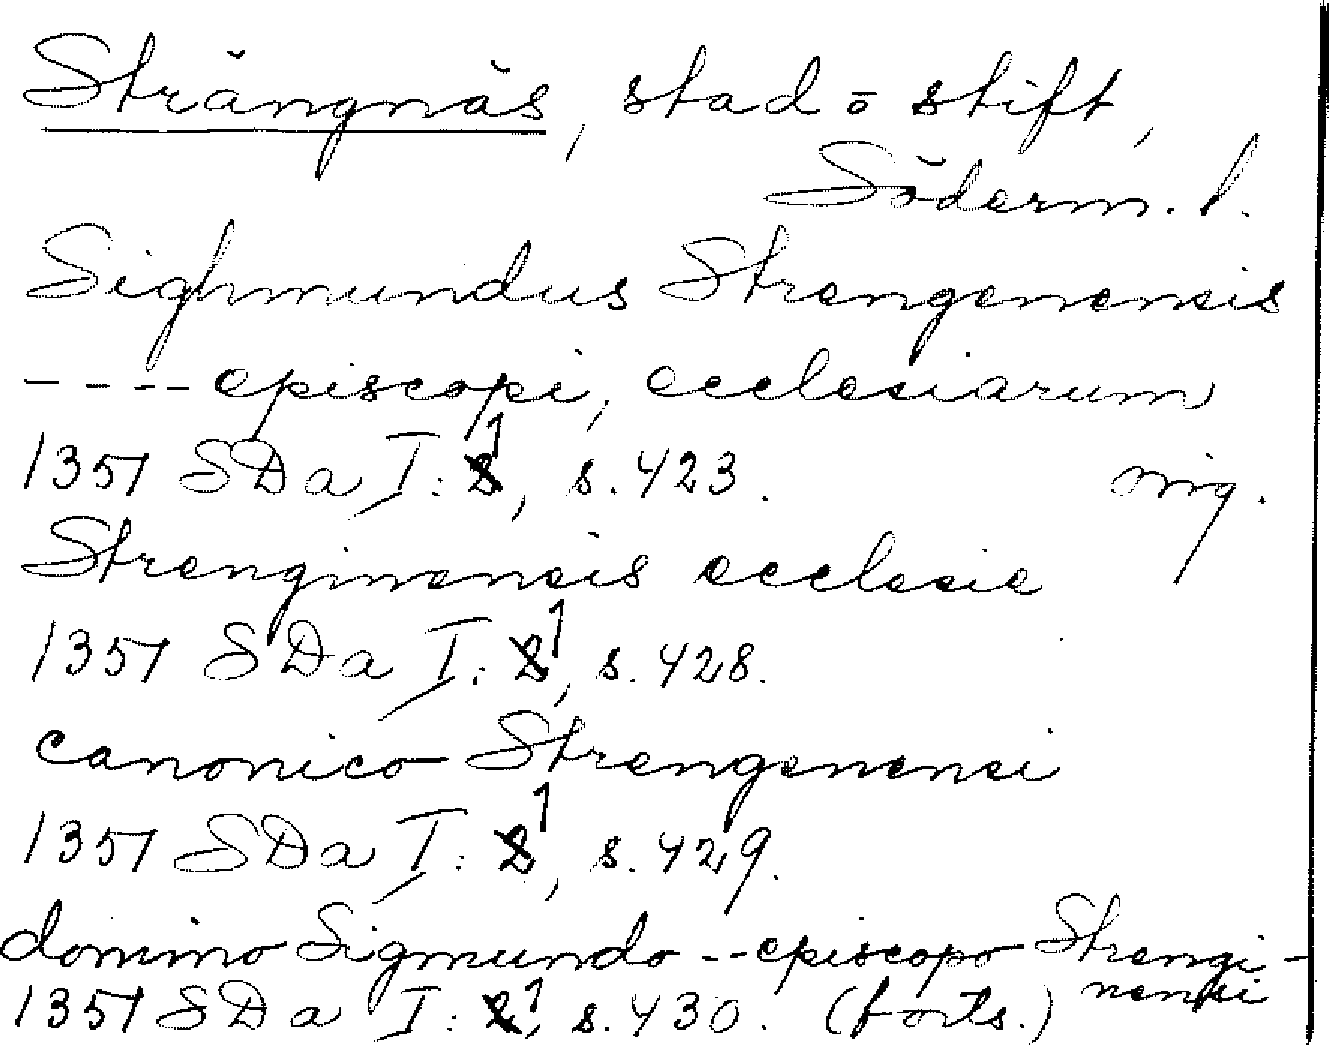 Strängnäs, stad o stift,
Söderm. l.
Sighmundus Strengenensis
---- episcopi, ecclesiarum
1357 SDa I: 1, s. 423. mg.
Strenginensis ecclesie
1357 SDa I: 1, s. 428.
canonico Strengenensi
1357 SDa I: 1, s. 429.
domino Sigmundo -- episcopo Strengi-
nensi
1357 SDa I: 1, s. 430. (forts.)